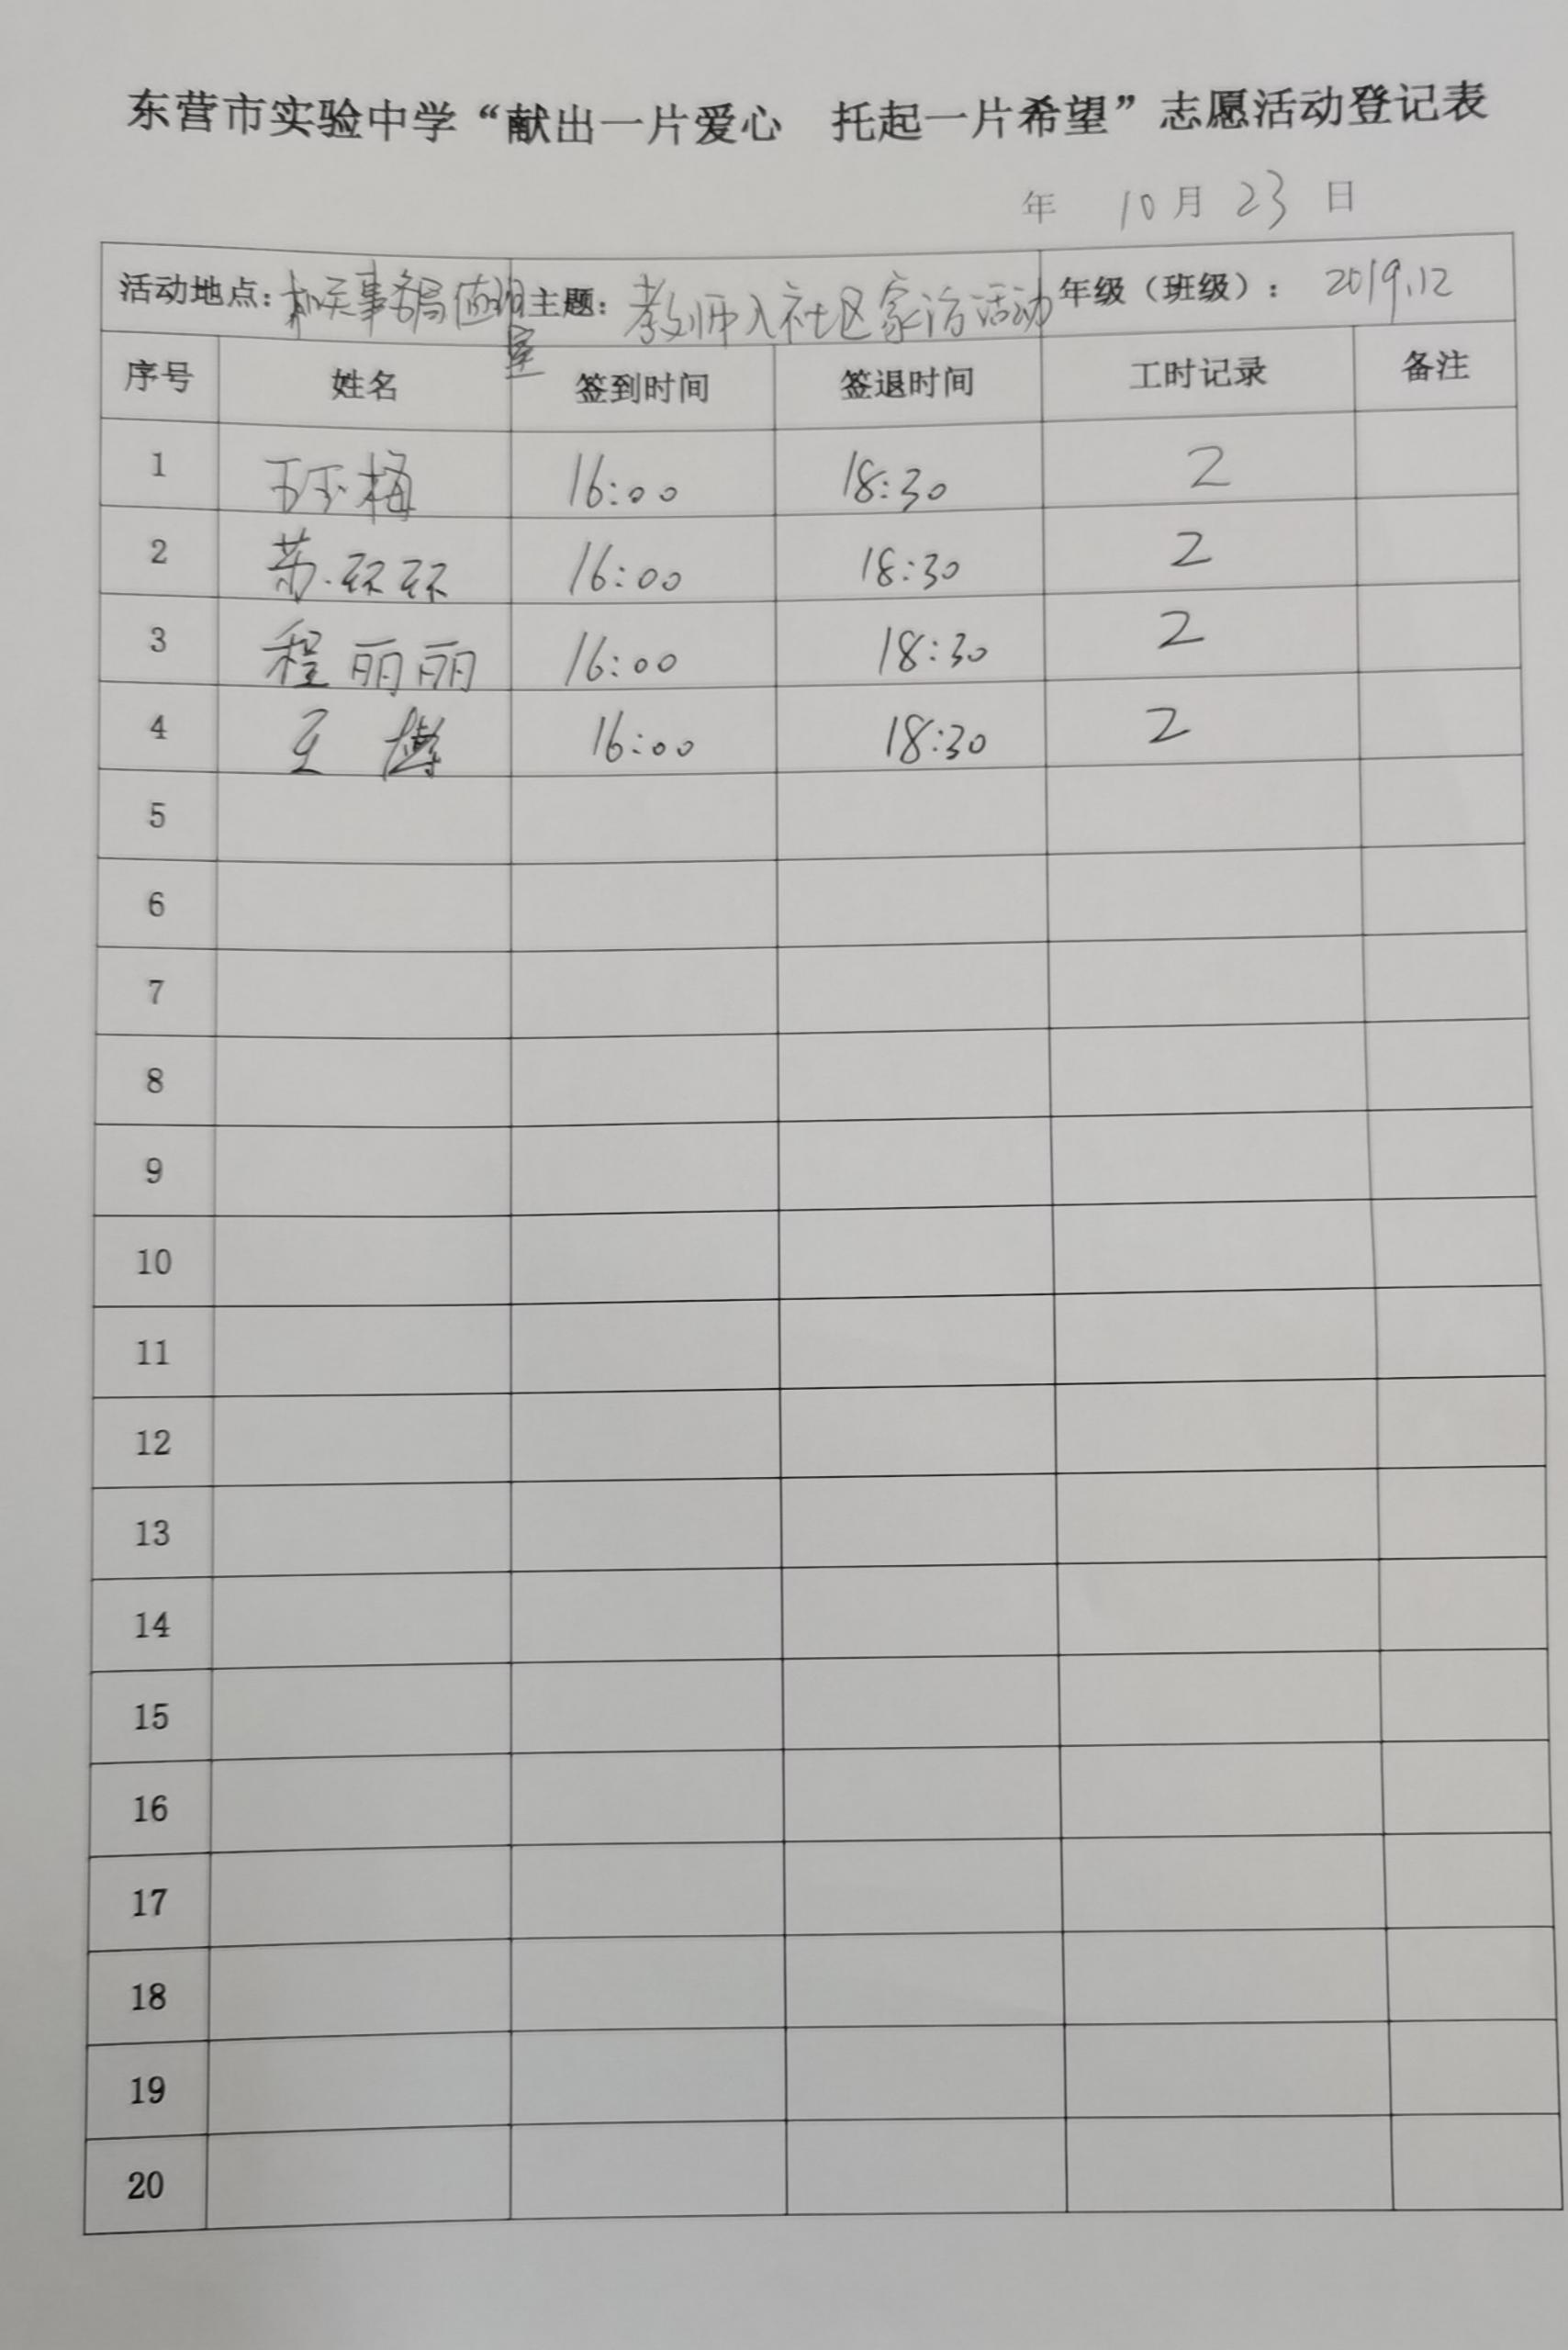 东营市实验中学“献出一片爱心 托起一片希望”志愿活动登记表
年 10月 23 日
活动地点：机关事务局值班室 主题：教师入社区家访活动 年级（班级）：2019.12
序号 姓名 签到时间 签退时间 工时记录 备注
1 王玉梅 16:00 18:30 2
2 苏环环 16:00 18:30 2
3 程丽丽 16:00 18:30 2
4 王博 16:00 18:30 2
5
6
7
8
9
10
11
12
13
14
15
16
17
18
19
20